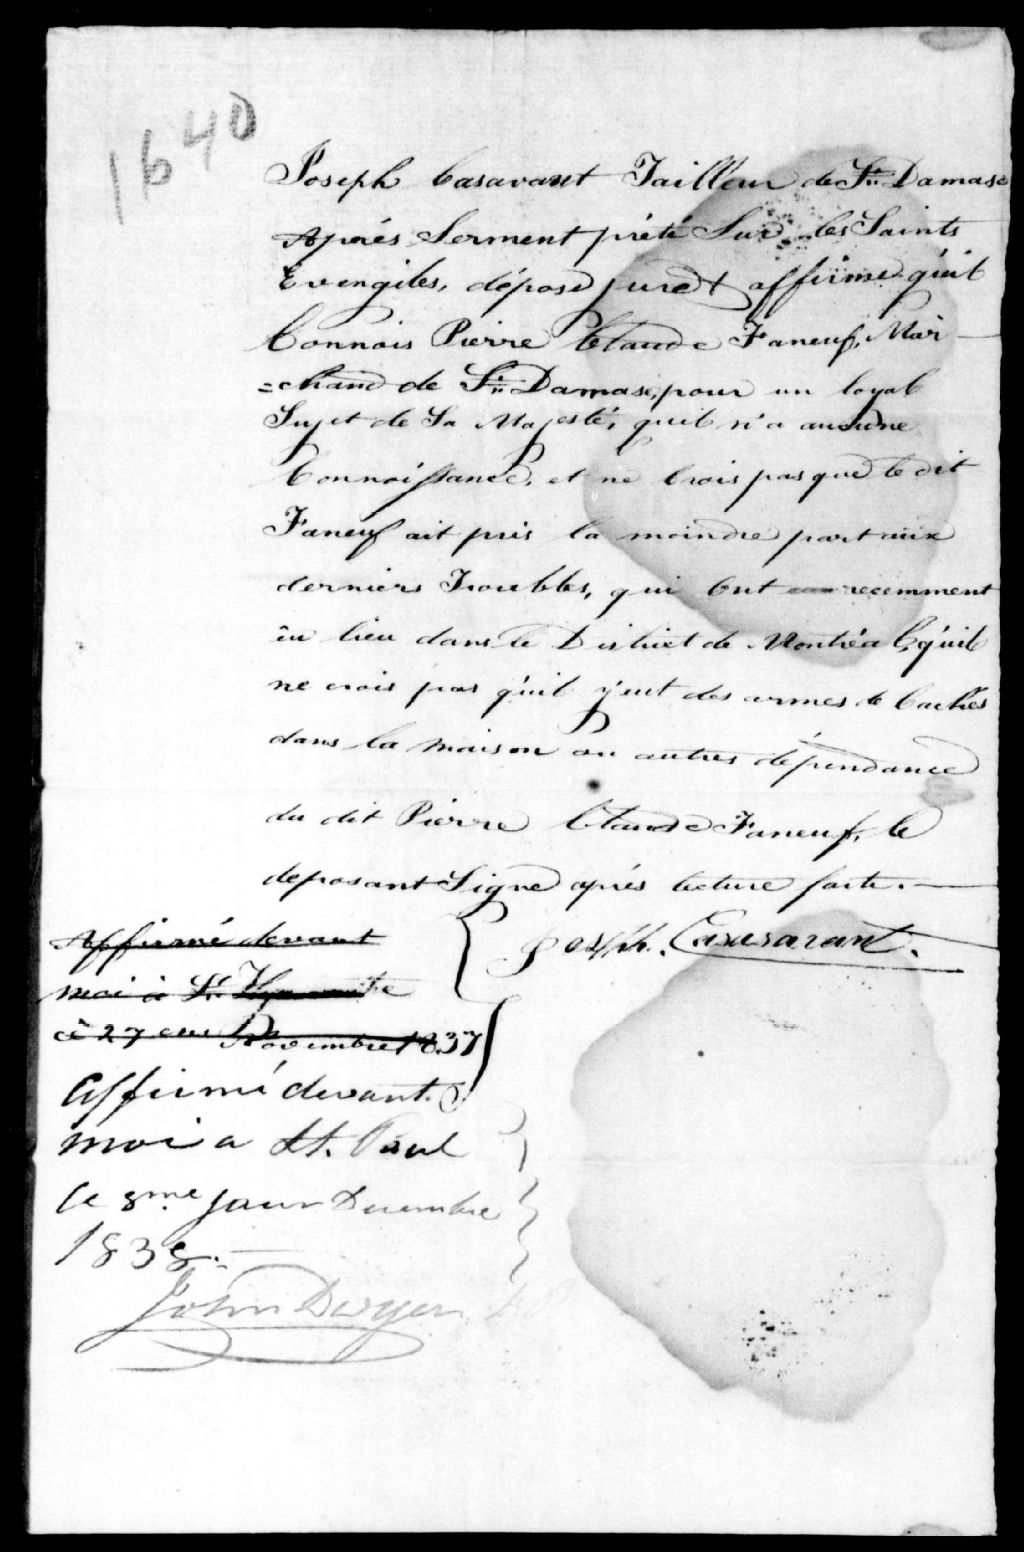 1640
Joseph Casavant Tailleur de St. Damase
Après Serment prété Sur les Saints
Evengiles, dépose jure et affirme qu'il
Connois Pierre Claude Faneuf, Mar-
=chand de St. Damase, pour un loyal
Sujet de Sa Majesté, qu'il n'a aucune
Connoissance, et ne Crois pas que le dit
Faneuf ait pris la moindre part aux
derniers Troubles, qui Ont recemment
êu lieu dans le District de Montréal, qu'il
ne crois pas qu'il y eut des armes de Cachés
dans la maison ou autres dépendance
du dit Pierre Claude Faneuf, le
deposant Signe après lecture faite.
Joseph. Casavant.
Affirmé devant
moi à St. Hyacinthe
ce 27 Novembre 1837
Affirmé devant
moi a St. Paul
le 8me Jour Decembre
1838.
John Dwyer